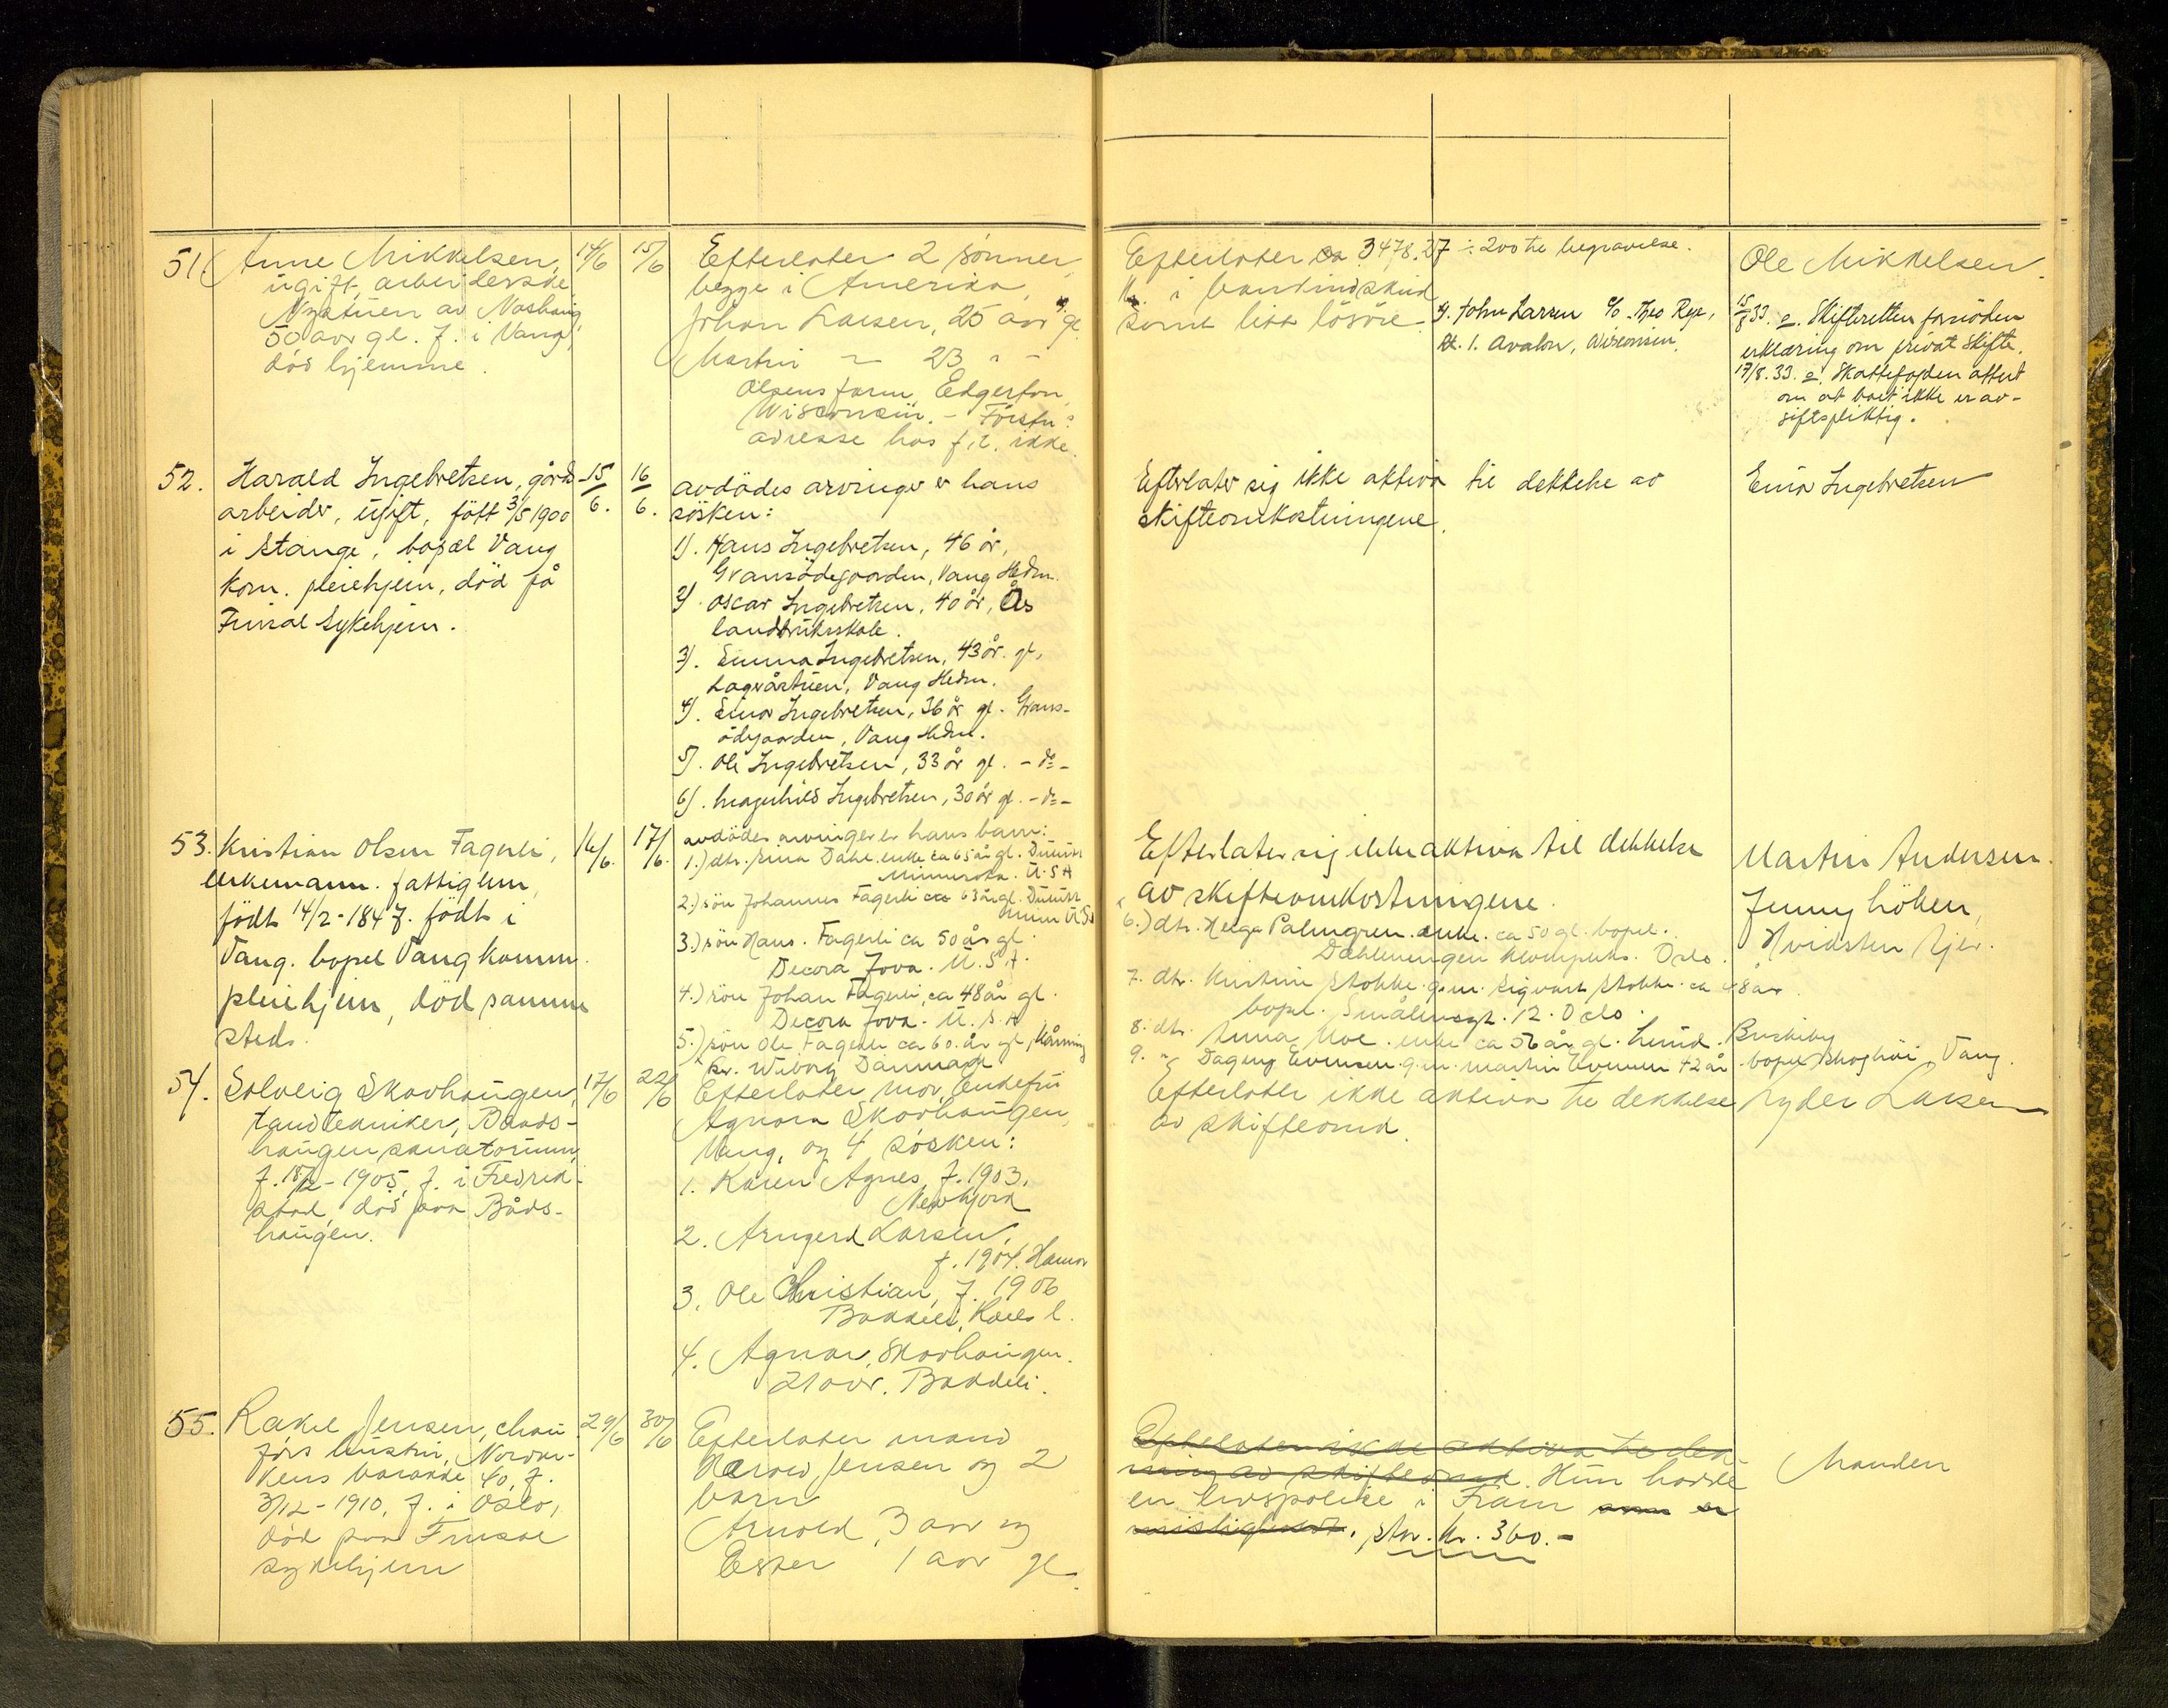 51. Anne Mikkelsen,
ugift, arbeiderske
Nystuen av Nashaug,
50 aar gl. f. i Vang,
død hjemme.
14/6
15/6
Efterlater 2 sønner,
begge i Amerika,
Johan Larsen, 25 aar gl.
Martin — 23 " —
Olsens farm, Edgerton,
Wisconsin. —
adresse hos f.r. ikke.
Efterlater ca 3478.27 ÷ 200 til begravelse.
kr. i bankindskud
samt litt løsøre
1). John Larsen c/o Theo Rye,
Rt. 1. Avalon, Wisconsin.
Ole Mikkelsen.
15/8 33. Skifteretten
erklæring om privat skifte.
17/8.33. Skattefogden attest
om at boet ikke er av-
giftspliktig.
52. Harald Ingebretsen, gårds-
arbeider, ugift, født 3/5 1900
i Stange, bopæl Vang
kom. pleiehjem, død på
Frisal Sykehjem.
15/6.
16/6.
avdødes arvinger er hans
søsken:
1). Hans Ingebretsen, 46 år,
Gransødegaarden, Vang Hedm.
2). Oscar Ingebretsen, 40 år, Ås
landbruksskole.
3). Emma Ingebretsen, 43 år. gl,
Vang Hedm.
4). Einar Ingebretsen, 36 år gl. Grans-
ødegaarden, Vang Hedm.
5). Ole Ingebretsen, 33 år gl. - do -
6). Magnhild Ingebretsen, 30 år gl. - do -
Efterlater sig ikke aktiva til dekkelse av
skifteomkostningene.
Einar Ingebretsen
53. Kristian Olsen Fagerli,
enkemann. fattiglem,
født 14/2-1847. født i
Vang. bopel Vang komm.
pleiehjem, død samme
steds.
16/6.
17/6.
avdødes arvinger er hans barn:
1.) dtr. Sina Dahl. enke ca 65 år gl. Duluth
Minnesota. U.S.A
2.) søn Johannes Fagerli ca 63 år gl. Duluth
Minn U.S.A
3.) søn Hans. Fagerli ca 50 år gl.
Decora Jova. U.S.A.
4.) søn Johan Fagerli, ca 48 år gl.
Decora Jova. U.S.A
5.) søn Ole Fagerli ca 60. år gl,
pr. Wiborg Danmark
Efterlater sig ikke aktiva til dekkelse
av skifteomkostningene.
6.) dtr. Helga Palmgren. enke. ca 50 gl. bopel.
Oslo.
7. dtr. Kristine Stokke. g.m. Sigvart Stokke. ca 48 år
bopel. Smålensgt. 12. Oslo.
8. dtr. Anna Moe. enke ca 56 år gl. Lund.
9. " Dagny Evensen. g.m. Martin Evensen 42 år. bopel Skoghøi, Vang.
Martin Andersen.
Jenny
54. Solveig Skovhaugen,
tandtekniker, Baads-
haugen sanatorium,
f. 18/12-1905, f. i Fredrik-
stad, død paa Båds-
haugen.
17/6
22/6
Efterlater mor, enkefru
Agnora Skovhaugen,
Vang, og 4 søsken:
1. Karen Agnes, f. 1903,
Newyork
2. Arngerd Larsen,
f. 1904. Hamar
3. Ole Christian, f. 1906
4. Agnar, Skovhaugen.
21 aar. Bakkeli.
Efterlater ikke aktiva til dekkelse
av skifteomk.
Ryder Larsen
55. Rakel Jensen, chau-
førs hustru, Nordvi-
kens barakke 40, f.
3/12-1910, f. i Oslo,
død paa Frisal
sykehjem
29/6
30/6
Efterlater mand
Harald Jensen og 2
barn
Arnold, 3 aar og
Ester 1 aar gl.
Efterlater ikke aktiva til dek-
ning av skifteomk. Hun hadde
en livspolise i Fram som er
, stor. kr. 360.-
Manden